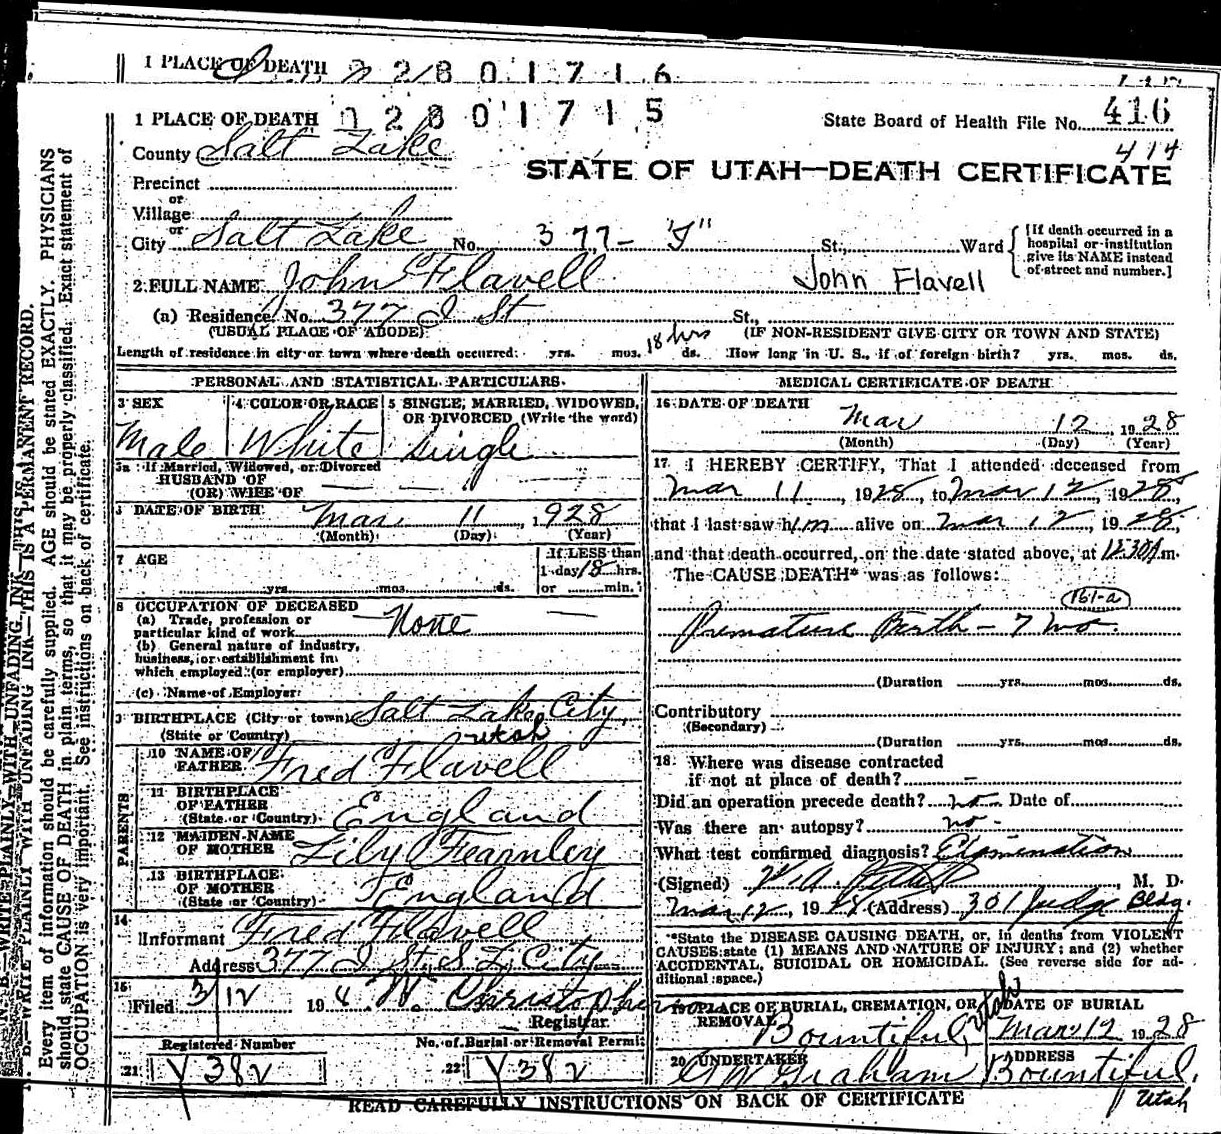 1 PLACE OF DEATH 2 2 8 0 1 7 1 6
1 PLACE OF DEATH 2 8 0 1 7 1 5
State Board of Health File No. 416
414
County Salt Lake
STATE OF UTAH—DEATH CERTIFICATE
Precinct
or
Village
or
City Salt Lake No. 377- "J" St., Ward
[If death occurred in a hospital or institution give its NAME instead of street and number.]
2 FULL NAME John Flavell John Flavell
(a) Residence No. 377 J St St.,
(USUAL PLACE OF ABODE) (IF NON-RESIDENT GIVE CITY OR TOWN AND STATE)
Length of residence in city or town where death occurred: yrs. mos. 18 hrs ds. How long in U. S., if of foreign birth? yrs. mos. ds.
PERSONAL AND STATISTICAL PARTICULARS.
3 SEX 4 COLOR OR RACE 5 SINGLE, MARRIED, WIDOWED, OR DIVORCED (Write the word)
Male White Single
5a If Married, Widowed, or Divorced
HUSBAND OF
(OR) WIFE OF
DATE OF BIRTH Mar. 11, 1928
(Month) (Day) (Year)
7 AGE If LESS than
1 day 18 hrs.
yrs. mos. ds. or min.
8 OCCUPATION OF DECEASED
(a) Trade, profession or
particular kind of work None
(b) General nature of industry,
business, or establishment in
which employed (or employer)
(c) Name of Employer
BIRTHPLACE (City or town) Salt Lake City,
(State or Country) Utah
PARENTS
10 NAME OF FATHER Fred Flavell
11 BIRTHPLACE OF FATHER
(State or Country) England
12 MAIDEN NAME OF MOTHER Lily Fearnley
13 BIRTHPLACE OF MOTHER
(State or Country) England
14
Informant Fred Flavell
Address 377 J St, S. L. City
15
Filed 3/12 19
Registrar
Registered Number No. of Burial or Removal Permit
21 Y 382 22 Y 382
MEDICAL CERTIFICATE OF DEATH
16 DATE OF DEATH
Mar 12, 1928
(Month) (Day) (Year)
17 I HEREBY CERTIFY, That I attended deceased from
Mar 11, 1928, to Mar 12, 1928,
that I last saw him alive on Mar 12, 1928,
and that death occurred, on the date stated above, at 12:30 A m.
The CAUSE DEATH* was as follows:
161-a
Premature Birth - 7 mo.
(Duration yrs. mos. ds.
Contributory
(Secondary)
(Duration yrs. mos. ds.
18. Where was disease contracted
if not at place of death? —
Did an operation precede death? no Date of
Was there an autopsy? no -
What test confirmed diagnosis? Examination
(Signed) M. D.
Mar 12, 1928 (Address) 301 Judge Bldg.
*State the DISEASE CAUSING DEATH, or, in deaths from VIOLENT
CAUSES state (1) MEANS AND NATURE OF INJURY; and (2) whether
ACCIDENTAL, SUICIDAL OR HOMICIDAL. (See reverse side for ad-
ditional space.)
19 PLACE OF BURIAL, CREMATION, OR REMOVAL DATE OF BURIAL
Bountiful, Utah Mar 12 1928
20 UNDERTAKER ADDRESS
Graham Bountiful,
Utah
READ CAREFULLY INSTRUCTIONS ON BACK OF CERTIFICATE
N. B.—WRITE PLAINLY WITH UNFADING INK—THIS IS A PERMANENT RECORD.
Every item of information should be carefully supplied. AGE should be stated EXACTLY. PHYSICIANS
should state CAUSE OF DEATH in plain terms, so that it may be properly classified. Exact statement of
OCCUPATION is very important. See instructions on back of certificate.